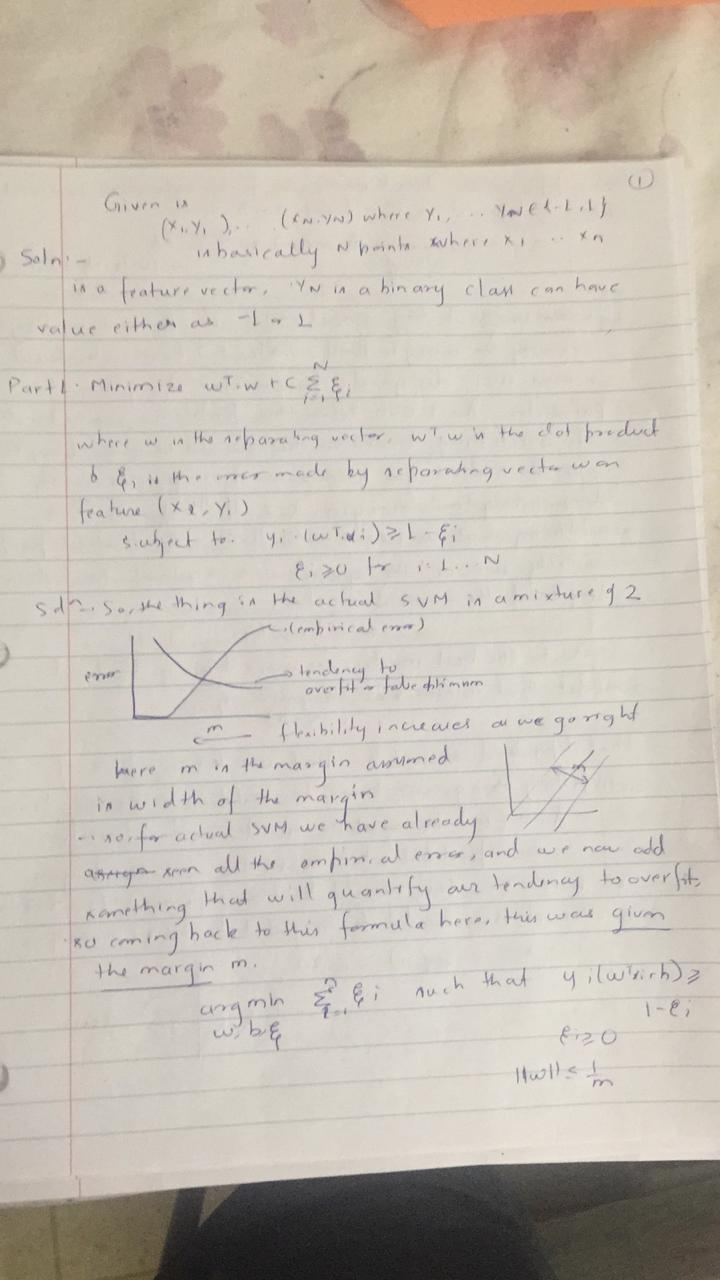 ①
Given is
(x₁, y₁), .. (xN, yN) where y₁, .. yN ∈ {-1, 1}
Soln:- is basically N points where x₁ .. xn
is a feature vector. YN is a binary class can have
value either as -1 or 1
Part 1. Minimize wᵀ.w + C Σᵢ₌₁ᴺ ξᵢ
where w is the separating vector, wᵀ.w is the dot product
& ξᵢ is the error made by separating vector w on
feature (xᵢ, yᵢ)
subject to: yᵢ.(wᵀ.xᵢ) ≥ 1 - ξᵢ
ξᵢ ≥ 0 for i=1...N
Solⁿ. So, the thing is the actual SVM is a mixture of 2
(empirical error)
error
→ tendency to
overfit false optimum
m ← flexibility increases as we go right
here m is the margin assumed
m
is width of the margin
so, for actual SVM we have already
seen all the empirical error, and we now add
something that will quantify our tendency to overfit,
so coming back to this formula here, this was given
the margin m.
argmin Σᵢ₌₁ⁿ ξᵢ such that yᵢ(wᵀxᵢ+b) ≥
w, b, ξ
1 - ξᵢ
ξᵢ ≥ 0
||w|| ≤ 1/m